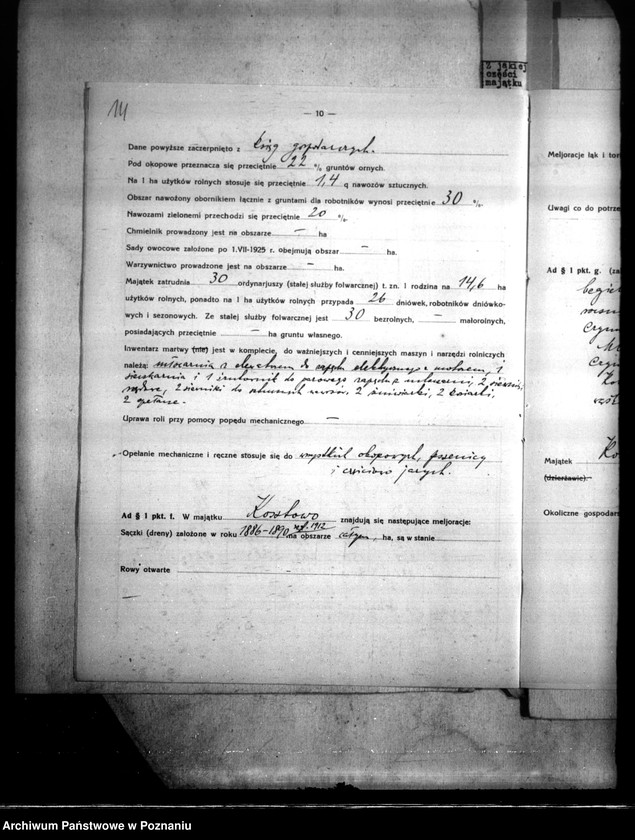 Z jakiej
części
majątku
14
— 10 —
Dane powyższe zaczerpnięto z ksiąg gospodarczych.
Pod okopowe przeznacza się przeciętnie 22 % gruntów ornych.
Na 1 ha użytków rolnych stosuje się przeciętnie 1,4 q nawozów sztucznych.
Obszar nawożony obornikiem łącznie z gruntami dla robotników wynosi przeciętnie 30 %.
Nawozami zielonemi przechodzi się przeciętnie 20 %.
Chmielnik prowadzony jest na obszarze — ha
Sady owocowe założone po 1.VII-1925 r. obejmują obszar — ha.
Warzywnictwo prowadzone jest na obszarze — ha.
Majątek zatrudnia 30 ordynarjuszy (stałej służby folwarcznej) t. zn. 1 rodzina na 14,6 ha
użytków rolnych, ponadto na 1 ha użytków rolnych przypada 26 dniówek, robotników dniówko-
wych i sezonowych. Ze stałej służby folwarcznej jest 30 bezrolnych, — małorolnych,
posiadających przeciętnie — ha gruntu własnego.
Inwentarz martwy (nie) jest w komplecie, do ważniejszych i cenniejszych maszyn i narzędzi rolniczych
należą: młocarnia z elewatorem do zapędu elektrycznego z motorem, 1
sieczkarnia i 1 śrutownik do parowego zapędu, 2 siewniki
rzędowe, 2 siewniki do sztucznych nawozów, 2 żniwiarki, 2 kosiarki,
2
Uprawa roli przy pomocy popędu mechanicznego —
Opełanie mechaniczne i ręczne stosuje się do wszystkich okopowych, pszenicy
i częściowo jarych.
Ad § 1 pkt. f. W majątku Kosztowo znajdują się następujące meljoracje:
Sączki (dreny) założone w roku 1886-1890 1912 na obszarze całym, ha, są w stanie
Rowy otwarte
Meljoracje łąk i tor
Uwagi co do potrze
Ad § 1 pkt. g. (za
Majątek Ko
(dzierżawie).
Okoliczne gospodars
Archiwum Państwowe w Poznaniu